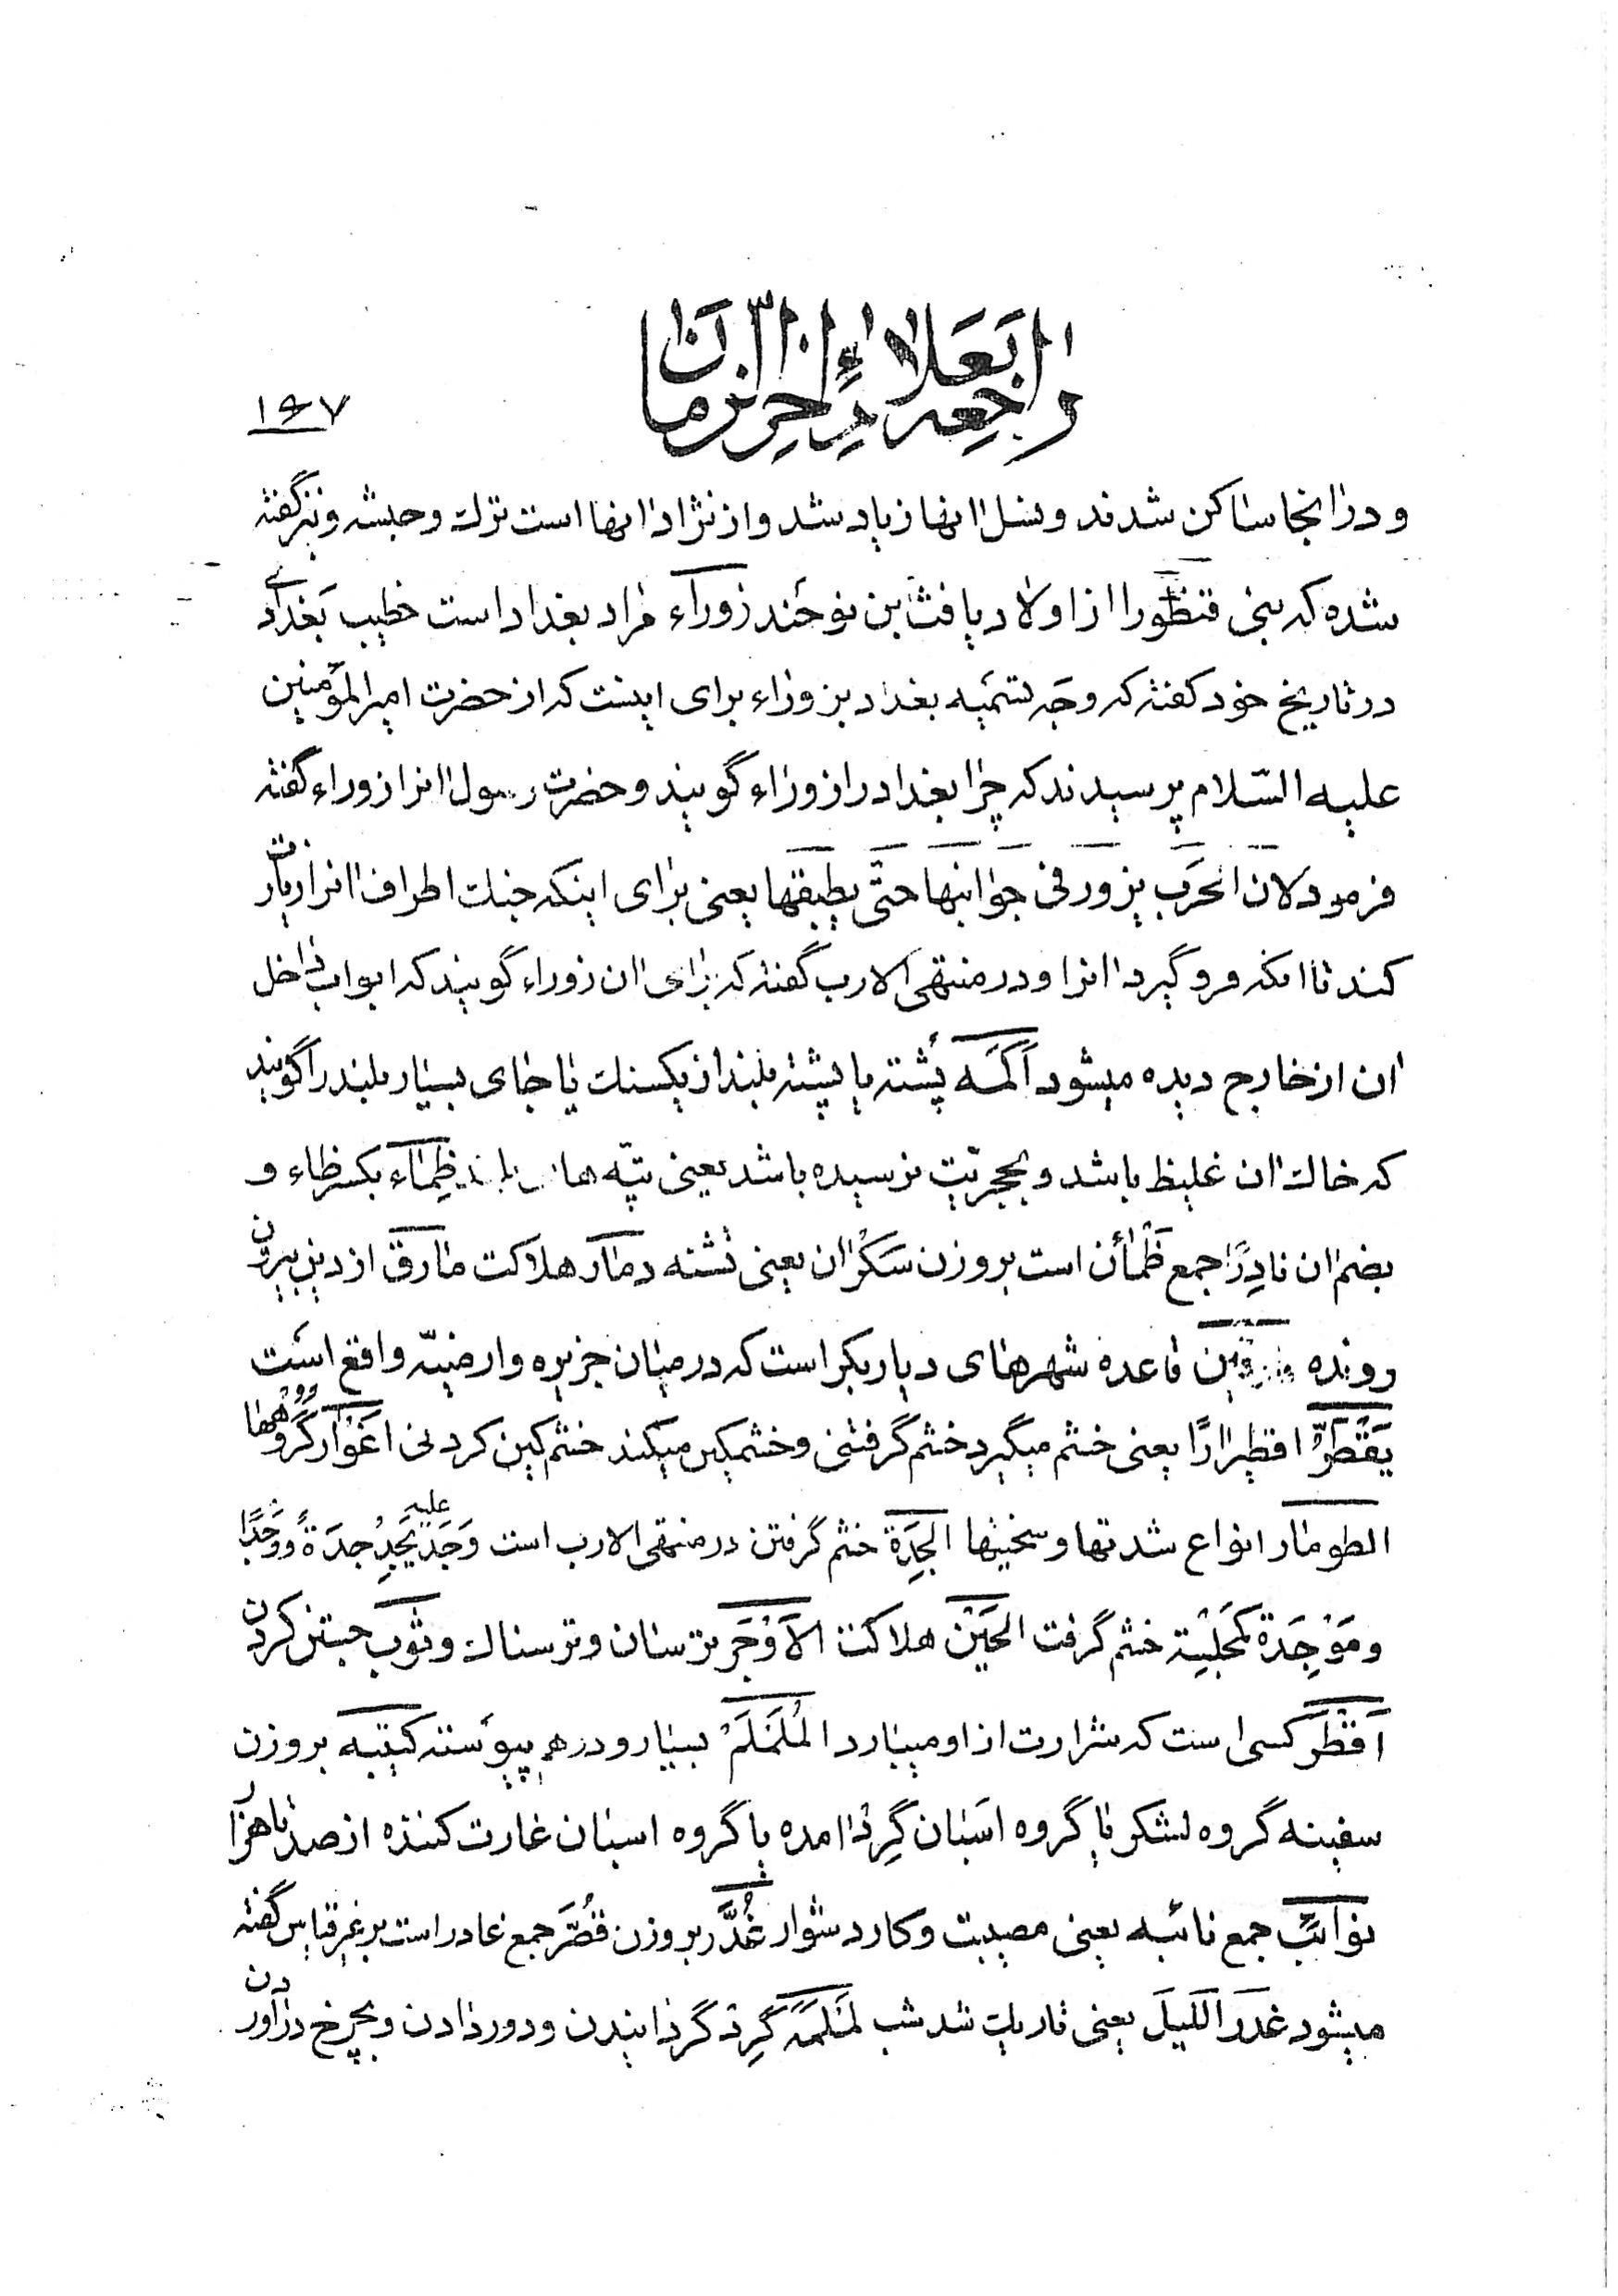 راجعه بعلاءم اخرالزمان
۱۶۷
و درانجا ساکن شدند و نسل انها زیاد شد و از نژاد انها است ترک و حبشه و نیز گفته
شده که بنی قنطورا از اولاد یافث بن نوحند زوراء مراد بغداد است خطیب بغدادی
در تاریخ خود گفته که وجه تسمیه بغداد بزوراء برای اینست که از حضرت امیرالمؤمنین
علیه السّلام پرسیدند که چرا بغداد را زوراء گویند و حضرت رسول انرا زوراء گفته
فرمود لان الحرب یزور فی جوانبها حتّی یطبقها یعنی برای اینکه جنک اطراف انرا زیارت
کند تا انکه فروگیرد انرا و در منتهی الارب گفته که برای ان زوراء گویند که ابواب داخل
ان از خارج دیده میشود اَکَمَه پُشته یا پشته بلند از یکسنک یا جای بسیار بلند را گویند
که خاک ان غلیظ باشد و بحجریّت نرسیده باشد یعنی تپّه های بلند ظِماء بکسر ظاء و
بضم ان نادِرًا جمع ظَمْأن است بروزن سَکْران یعنی تشنه دمار هلاکت مارق از دین بیرون
رونده قاعده شهرهای دیاربکر است که در میان جزیره و ارمنیّه واقع است
یَقْطَرّ اقطیرارًا یعنی خشم میگیرد خشم گرفتنی و خشمکین میکند خشمکین کردنی اغوار گروهها
الطومار انواع شدتها و سختیها الجِدَة خشم گرفتن در منتهی الارب است وَجَدَ علیه یَجِدُ جِدَةً وَوَجَدًا
و مَوْجِدَة کمَجْلِیَة خشم گرفت الحَیْن هلاکت الاَوْجَر ترسان و ترسناک وثوب جستن کردن
اَقْطَر کسی است که شرارت از او میبارد المُلَمْلَمْ بسیار و درهم پیوسته کتیبه بروزن
سفینه گروه لشکر یا گروه اسبان گِرد امده یا گروه اسبان غارت کننده از صد تا هزار
نوائب جمع نائبه یعنی مصیبت و کار دشوار غُدَّر بروزن قُصَّر جمع غادر است بر غیر قیاس گفته
میشود غَدَرَ اللَّیلَ یعنی تاریک شد شب لَمْلَمَه گِرد گردانیدن و دور دادن و بچرخ دراوردن